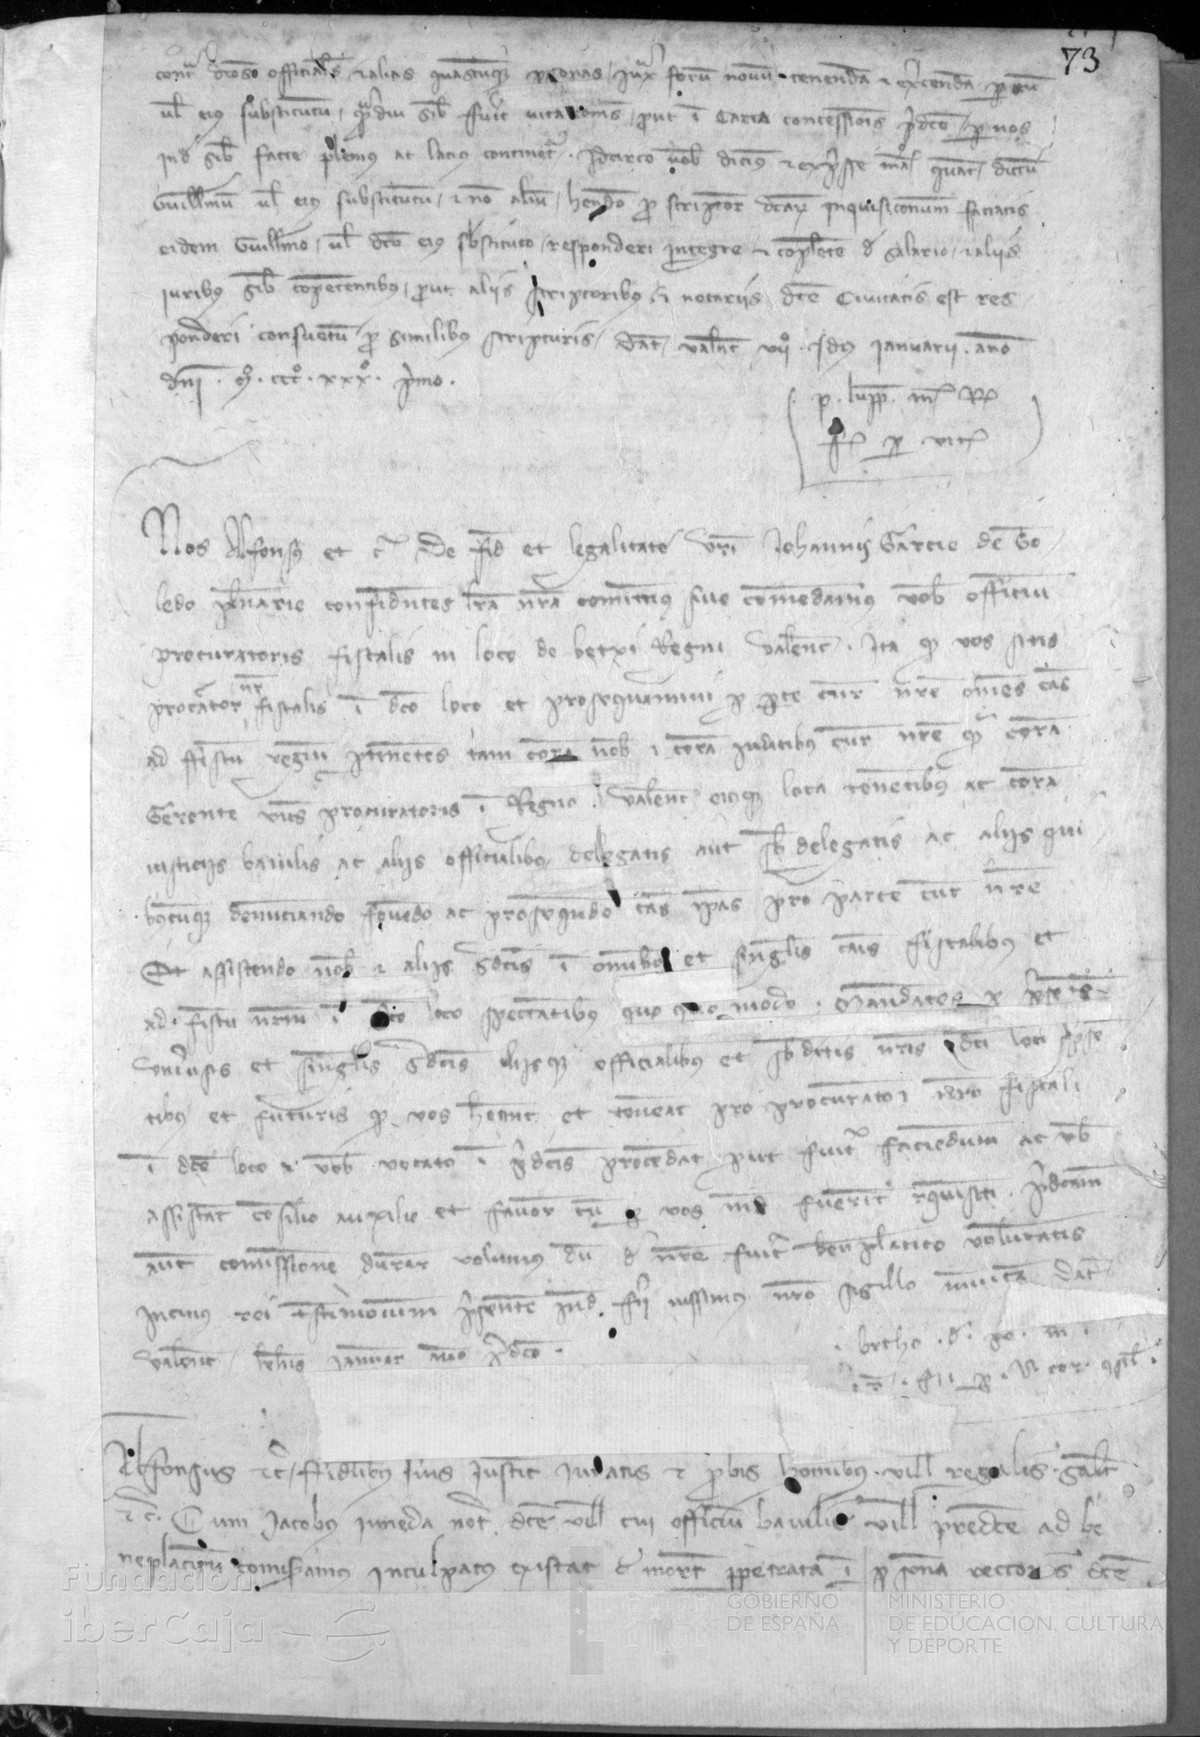 73
contra dictos officiales et alias quascumque personas iuxta forum novum tenenda et exercenda per eum
vel eius substitutum quamdiu sibi fuerit vita comes prout in Carta concessionis predicte per nos
inde sibi facte plenius ac lacius continetur. Idcirco vobis dicimus et expresse mandamus quatenus dictum
Guillelmum vel eius substitutum et non alium habendo pro scriptore dictarum inquisicionum faciatis
eidem Guillelmo vel dicto eius substituto responderi integre et complete de salario et aliis
iuribus sibi competentibus prout aliis scriptoribus et notariis dicte Civitatis est res
ponderi consuetum pro similibus scripturis. Dat. Valencie viiº Idus Ianuarii anno
domini Mº CCCº XXXº primo.
Nos Alfonsus et c. De fide et legalitate vestri Iohannis Garcie de To
ledo plenarie confidentes litera nostra comitimus sive comendamus vobis officium
procuratoris fiscalis in loco de betxi Regni Valencie. Ita quod vos sitis
procurator noster fiscalis in dicto loco et prosequamini pro parte curie nostre omnes causas
ad fiscum regium pertinentes tam coram nobis et coram iudicibus curie nostre quam coram
Gerente vices procuratoris in Regno Valencie eiusque loca tenentibus ac coram
iusticiis baiulis ac aliis officialibus delegatis aut subdelegatis ac aliis qui
buscumque denunciando fovendo ac prosequendo causas ipsas pro parte curie nostre
Et assistendo nobis et aliis predictis in omnibus et singulis causis fiscalibus et
ad fiscum nostrum in dicto loco spectantibus quoquo modo. Mandantes per presentes
universis et singulis predictis aliisque officialibus et subditis nostris dicti loci presen
tibus et futuris quod vos habeant et teneant pro procuratore nostro fiscali
in dicto loco et vobis vocato in predictis procedant prout fuerit faciendum ac vobis
assistant consilio auxilio et favore cum per vos inde fuerint requisiti. predictam
autem comissionem durare volumus dum de nostre fuerit beneplacito voluntatis
In cuius rei testimonium presentem inde fieri iussimus nostro sigillo munitam Dat.
Valencie kalendis Ianuarii anno predicto.
Alfonsus etc. fidelibus suis Iustitie iuratis et probis hominibus ville regalis Salutem
etc. Cum Iacobus iuneda notarius dicte ville cui officium baiulie ville predicte ad be
neplacitum comisimus inculpatus existat de morte perpetrata in personam rectoris dicte
Fundación
iberCaja
GOBIERNO
DE ESPAÑA
MINISTERIO
DE EDUCACION, CULTURA
Y DEPORTE